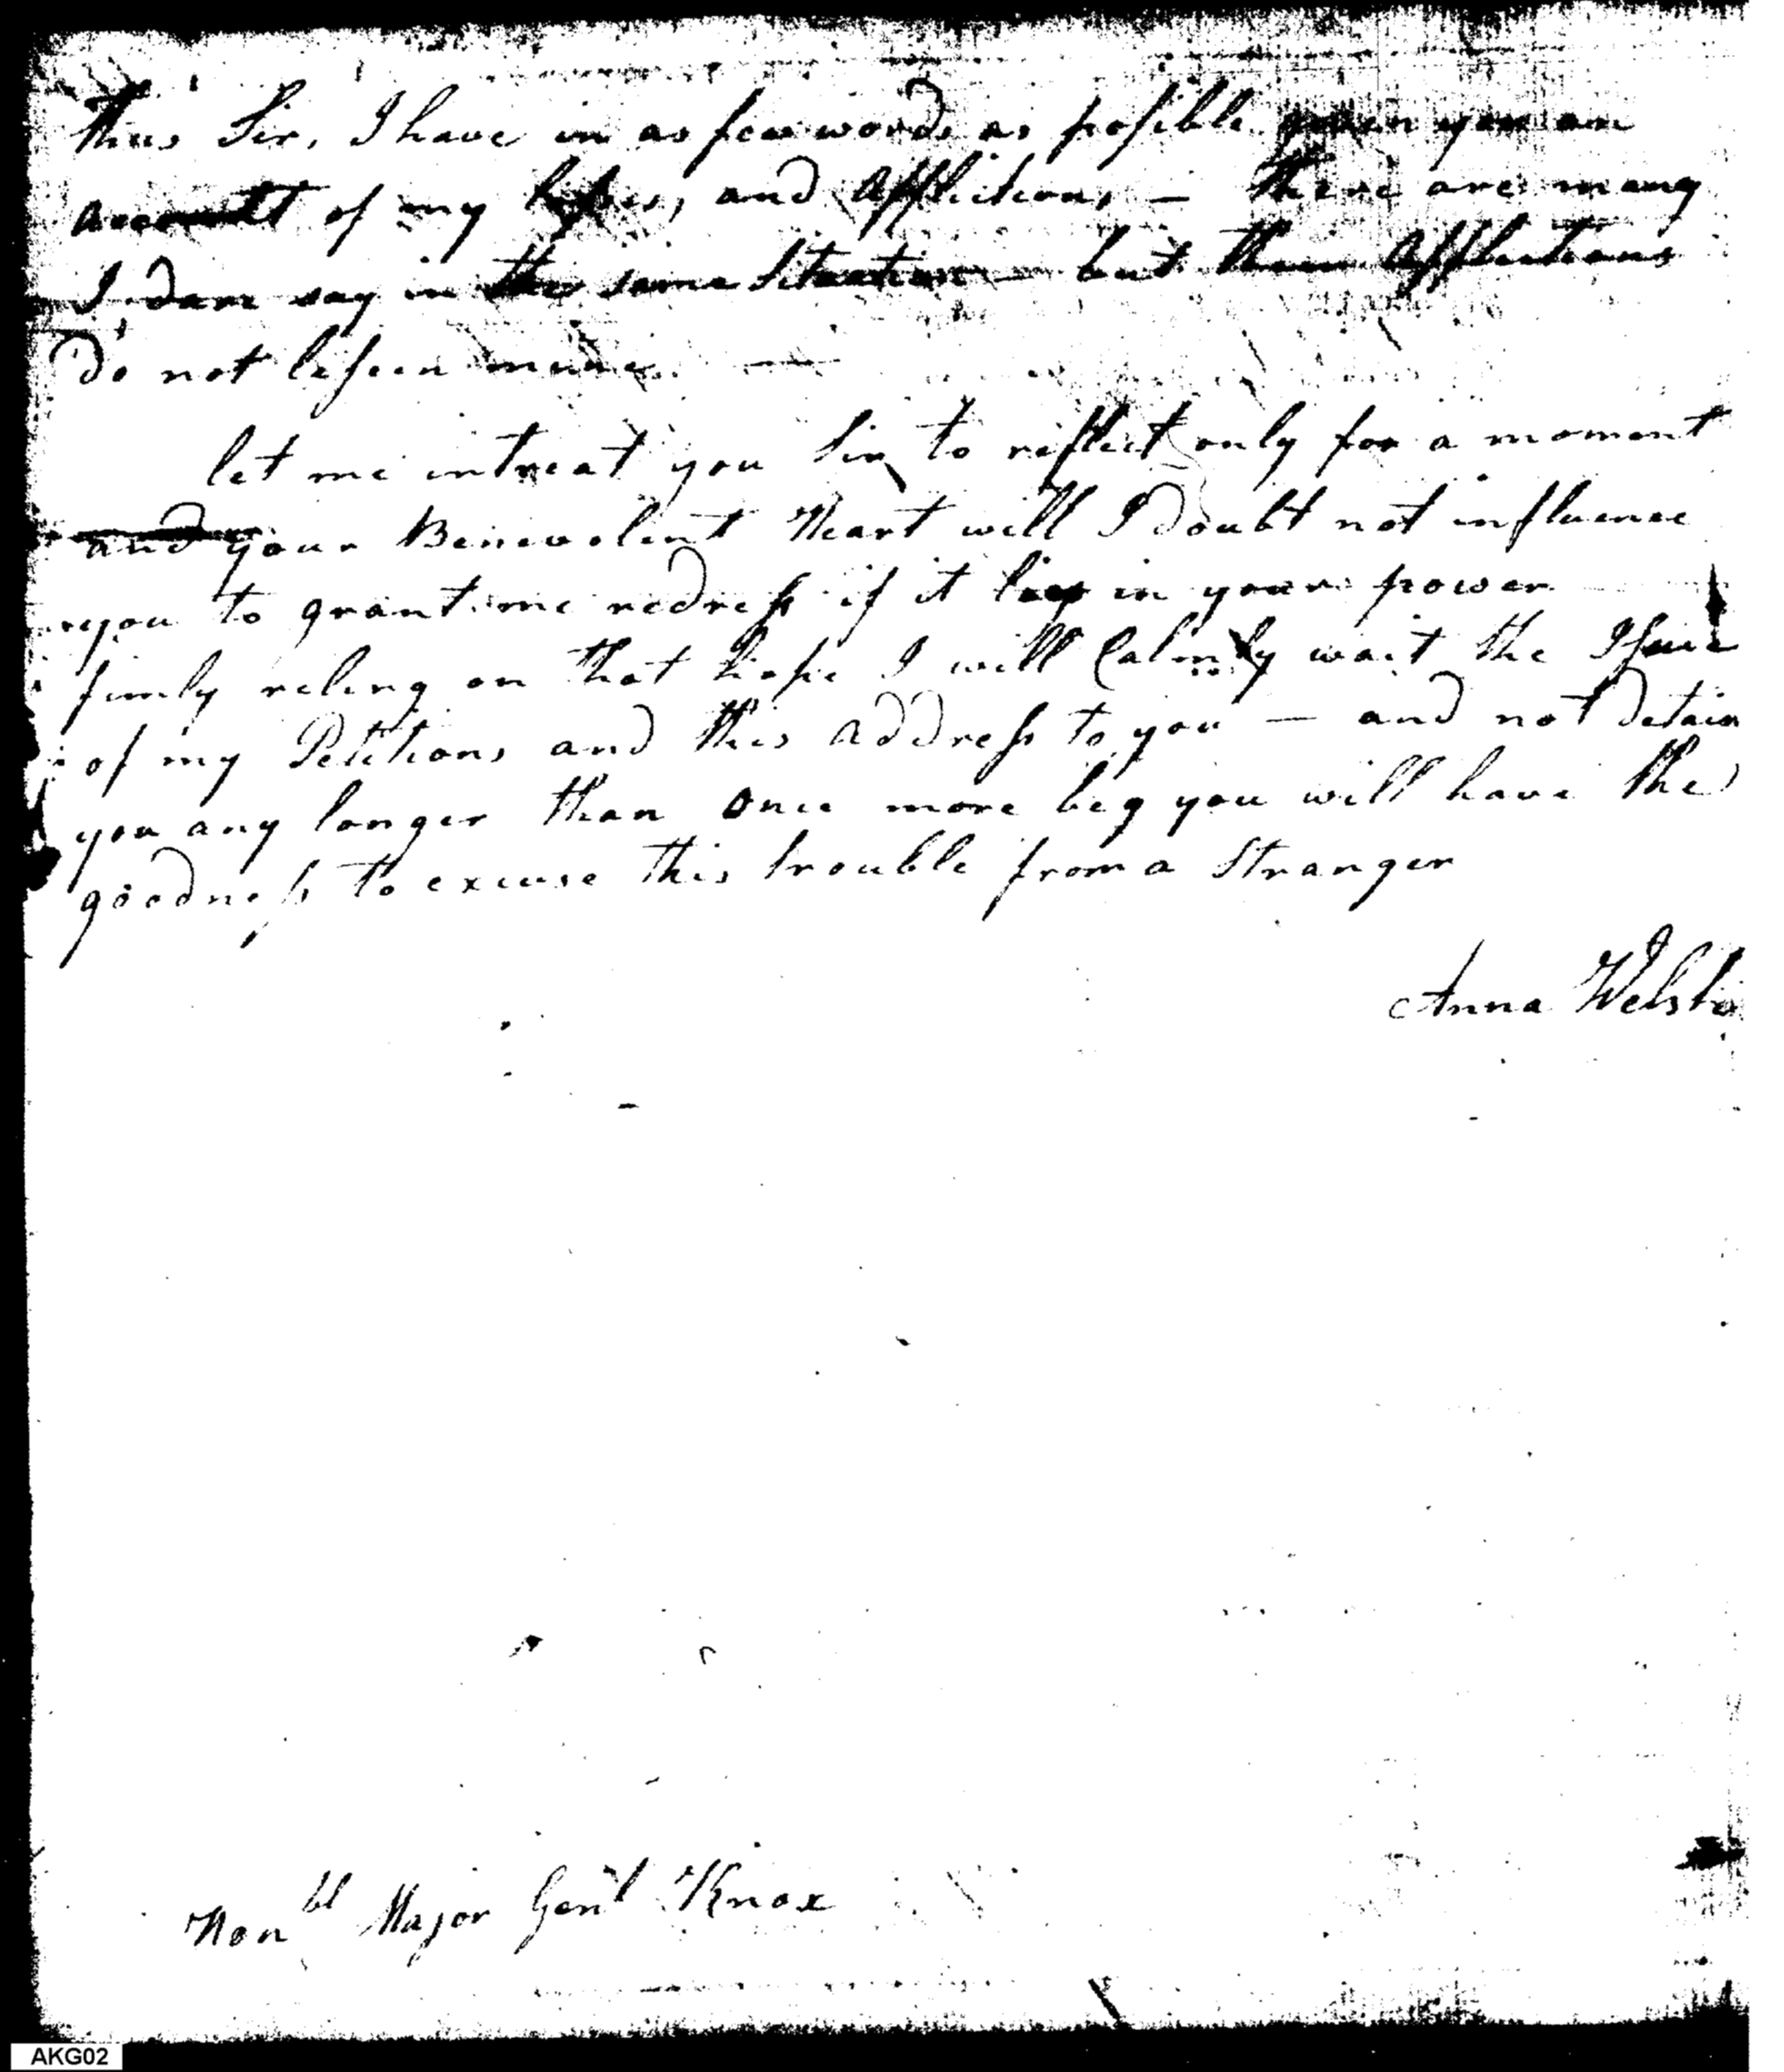 thus Sir, I have in as few words as possible given you an
account of my losses, and afflictions — there are many
I dare say in the same Situation — but their afflictions
do not lessen mine. —
let me intreat you Sir, to reflect only for a moment
and your Benevolent Heart will I doubt not influence
you to grant me redress if it lies in your power
firmly reling on that hope I will Calmly wait the Issue
of my Petitions and this address to you — and not detain
you any longer than once more beg you will have the
goodness to excuse this trouble from a Stranger
Anna Welsh
Honbl Major Genl Knox
AKG02